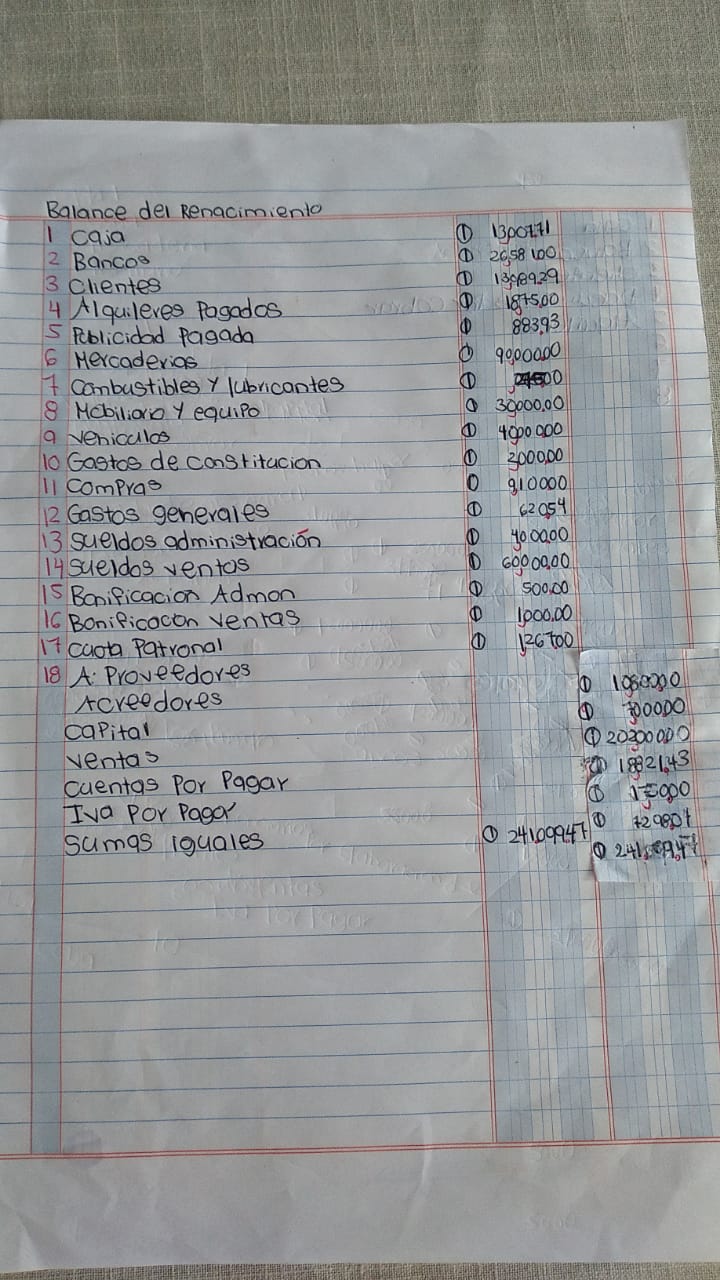 Balance del Renacimiento
1 Caja ① 13007.71
2 Bancos ① 26581.00
3 Clientes ① 13989.29
4 Alquileres Pagados ① 1875.00
5 Publicidad Pagada ① 883.93
6 Mercaderias ① 90000.00
7 Combustibles y lubricantes ①
8 Mobiliario y equipo ① 30000.00
9 Vehiculos ① 40000.00
10 Gastos de constitucion ① 3000.00
11 Compras ① 9100.00
12 Gastos generales ① 620.54
13 Sueldos administración ① 4000.00
14 Sueldos ventas ① 6000.00
15 Bonificacion Admon ① 500.00
16 Bonificacion ventas ① 1000.00
17 Cuota Patronal ① 1267.00
18 A: Proveedores ①
Acreedores ①
Capital ①
Ventas ① 18821.43
Cuentas Por Pagar ①
Iva Por Pagar ①
Sumas iguales ① 241,099.47 ①